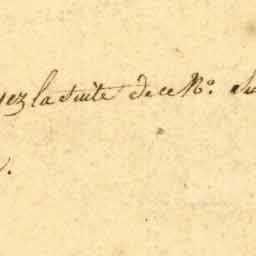 yez la suite de ce N.º